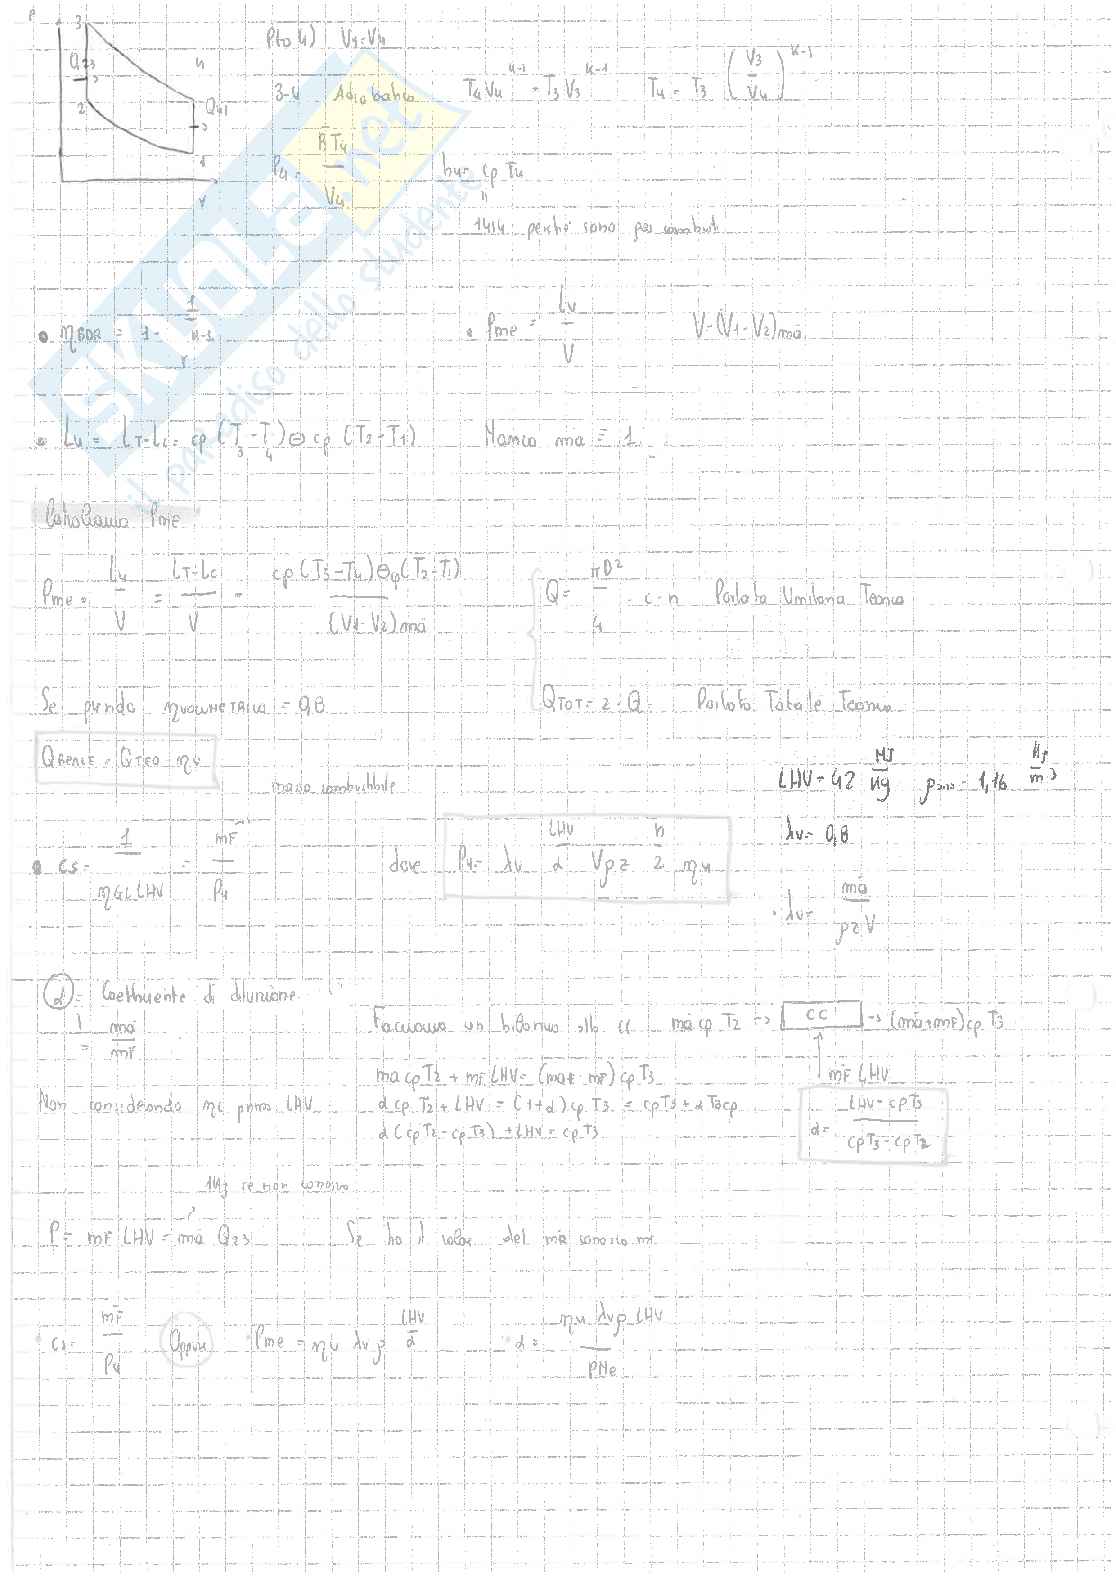 P 3
Q23
2
4
Q41
1
V
Pto 4) V1=V4
3-4 Adiabatica T4V4^K-1 = T3V3^K-1 T4 = T3 (V3/V4)^K-1
P4 = RT4/V4 h4= cp T4
1414 perché sono gas combusti
SKUOLA.net
il paradiso dello studente
• ηBDR = 1 - 1/r^K-1 • Pme = Lu/V V=(V1-V2)ma
• Lu = LT-Lc = cp (T3-T4) ⊖ cp (T2-T1) Manca ma = 1
Calcoliamo Pme
Pme = Lu/V = LT-Lc/V = cp(T3-T4)⊖cp(T2-T1)/(V1-V2)ma
Q= πD²/4 · c · n Portata Teorica
Se prendo ηVOLUMETRICO = 0,8
QTOT= 2·Q Portata Totale Teorica
QREALE = QTEO ηv
LHV=42 MJ/Kg ρaria= 1,16 Kg/m³
massa combustibile
λv= 0,8
• cs= 1/ηGL LHV = mF/Pu dove Pu= λv LHV/α Vρz n/2 ηu
• λv= ma/ρzV
α = Coefficiente di diluizione
= ma/mF
Facciamo un bilancio alla CC ma cp T2 → CC → (ma+mF)cp T3
mF LHV
ma cp T2 + mF LHV = (ma+mF) cp T3
Non considerando ηc primo LHV
α cp T2 + LHV = (1+α) cp T3 = cpT3 + αT3cp
α (cpT2-cpT3) + LHV = cpT3
α= LHV-cpT3/cpT3-cpT2
1Kg se non conosco
P= mF LHV = ma Q23 Se ho il valore del ma conosco mF
• cs= mF/Pu Oppure • Pme = ηu λv ρ LHV/α • α= ηu λv ρ LHV/PMe